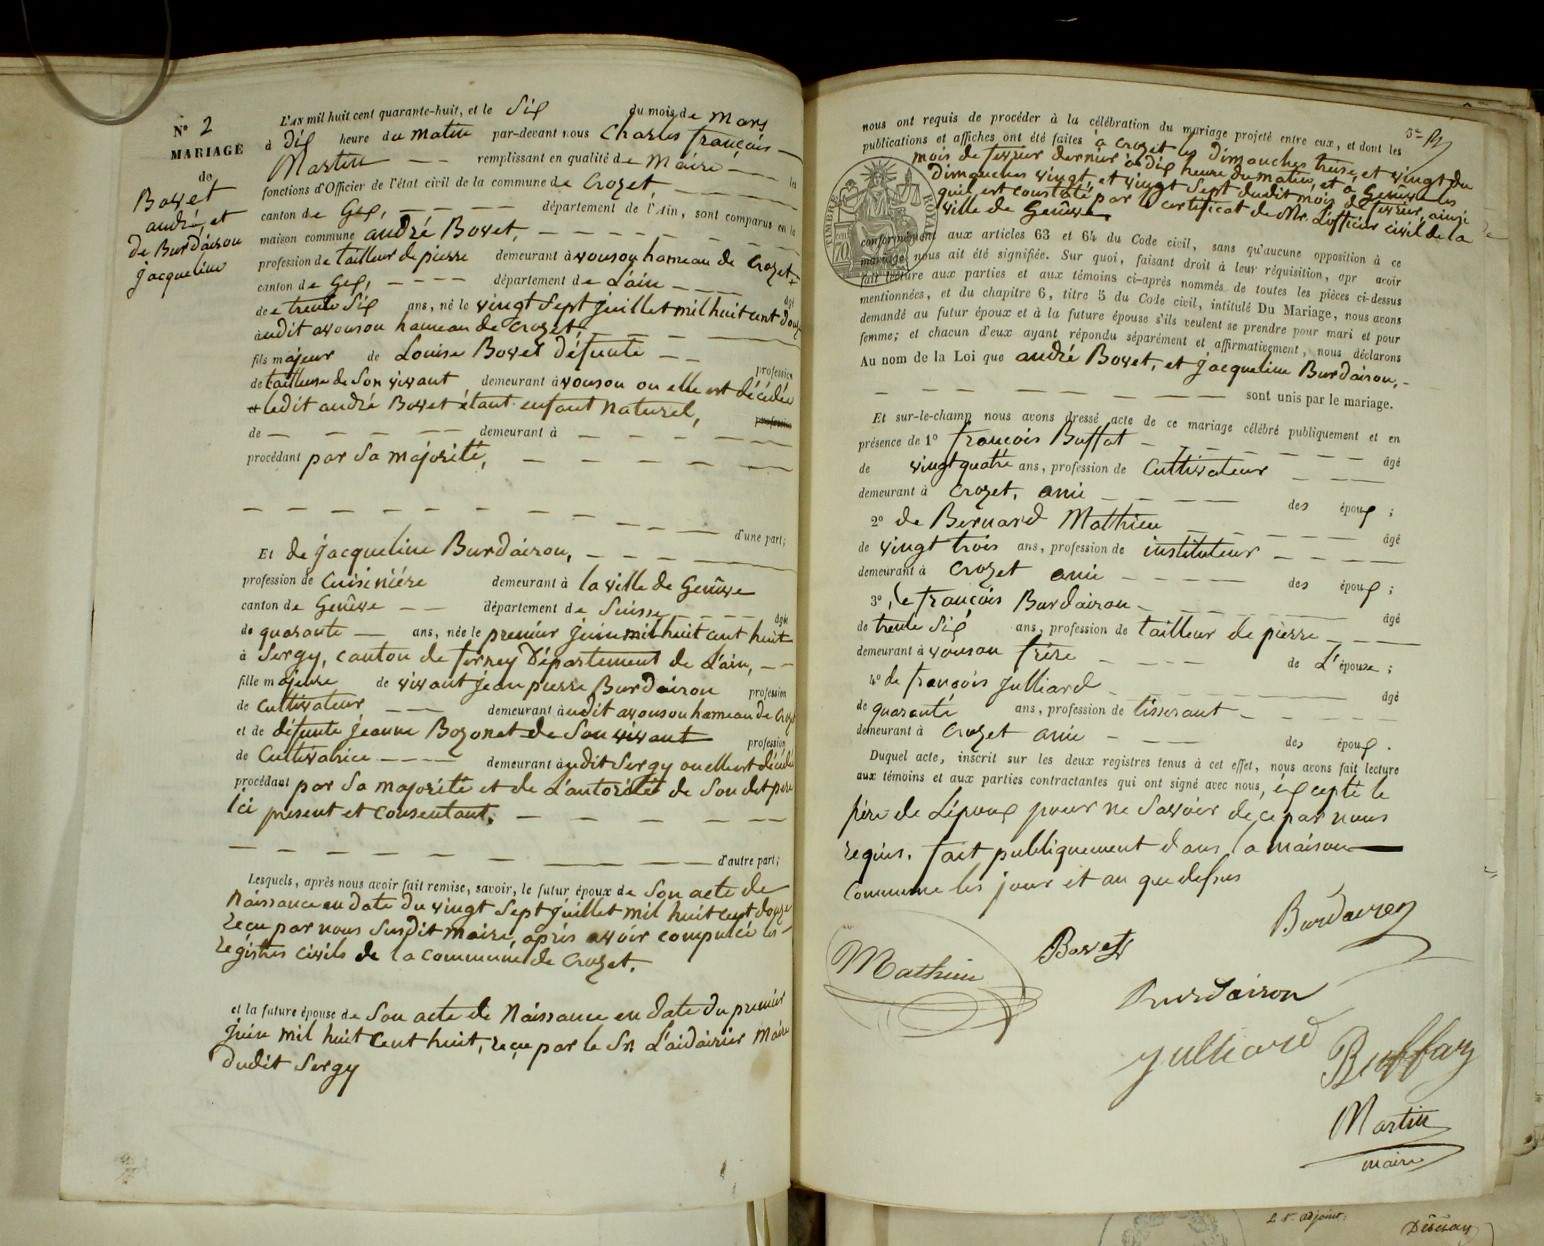 N° 2
MARIAGE
de
Bovet
andré, et
de Burdairon
jacqueline
L'AN mil huit cent quarante-huit, et le Six du mois de Mars
à Dix heure du matin par-devant nous Charles françois
Martin remplissant en qualité de Maire les
fonctions d'Officier de l'état civil de la commune de Crozet,
canton de Gex, département de l'Ain, sont comparus en la
maison commune andré Bovet,
profession de tailleur de pierre demeurant à vouson hameau de Crozet
canton de Gex, département de L'ain âgé
de trente Six ans, né le vingt Sept juillet mil huit cent douze
audit avouson hameau de Crozet,
fils majeur de Louise Bovet défunte profession
de tailleuse de Son vivant, demeurant à vouson ou elle est décédée
ledit andré Bovet étant enfant naturel, profession
de demeurant à
procédant par Sa majorité,
d'une part;
Et de jacqueline Burdairon,
profession de Cuisinière demeurant à la ville de Genève
canton de Genève département de Suisse âgée
de quarante ans, née le premier juin mil huit cent huit
à Sergy, canton de ferney Département de L'ain,
fille majeure de vivant jean pierre Burdairon profession
de Cultivateur demeurant audit avouson hameau de Croz
et de défunte jeanne Bozonet de Son vivant profession
de Cultivatrice demeurant audit Sergy ou elle est décédée
procédant par Sa majorité et de L'autorité de Son dit père
ici present et consentant,
d'autre part;
Lesquels, après nous avoir fait remise, savoir, le futur époux de Son acte de
Naissance en date du vingt Sept juillet mil huit cent douze
reçu par nous Susdit maire, après avoir compulcé les
régistres civils de la commune de Crozet.
et la future épouse de Son acte de Naissance en date du premier
juin mil huit Cent huit, reçu par le Sr. Maire
Dudit Sergy
nous ont requis de procéder à la célébration du mariage projeté entre eux, et dont les
publications et affiches ont été faites à Crozet les Dimanches treize, et vingt du
mois de fevrier dernier à dix heure du matin, et à Genève les
Dimanches vingt, et vingt Sept dudit mois de fevrier, ainsi
qu'il est constaté par le certificat de Mr. L'officier civil de la
ville de Genève
TIMBRE ROYAL
conformément aux articles 63 et 64 du Code civil, sans qu'aucune opposition à ce
mariage nous ait été signifiée. Sur quoi, faisant droit à leur réquisition, apr avoir
fait lecture aux parties et aux témoins ci-après nommés de toutes les pièces ci-dessus
mentionnées, et du chapitre 6, titre 5 du Code civil, intitulé Du Mariage, nous avons
demandé au futur époux et à la future épouse s'ils veulent se prendre pour mari et pour
femme; et chacun d'eux ayant répondu séparément et affirmativement, nous déclarons
Au nom de la Loi que andré Bovet, et jacqueline Burdairon,
sont unis par le mariage.
Et sur-le-champ nous avons dressé acte de ce mariage célébré publiquement et en
présence de 1° françois Buffat âgé
de vingt quatre ans, profession de Cultivateur
demeurant à Crozet, ami des époux;
2° de Bernard Mathieu âgé
de vingt trois ans, profession de instituteur
demeurant à Crozet ami des époux;
3°, de françois Burdairon âgé
de trente Six ans, profession de tailleur de pierre
demeurant à vouson frère de L'épouse;
4° de françois julliard âgé
de quarante ans, profession de tisserant
demeurant à Crozet ami des époux.
Duquel acte, inscrit sur les deux registres tenus à cet effet, nous avons fait lecture
aux témoins et aux parties contractantes qui ont signé avec nous, éxcepté le
père de L'épouse pour ne Savoir de ce par nous
requis. fait publiquement dans la maison
Commune les jour et an que dessus
Burdairon
Bovet
Mathieu
Burdairon
julliard
Buffat
Martin
maire